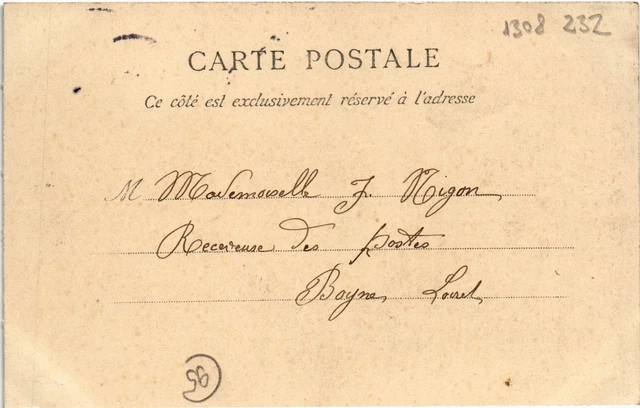 1308 232
CARTE POSTALE
Ce côté est exclusivement réservé à l'adresse
M Mademoiselle J. Nigon
Receveuse des postes
Boyne Loiret
95